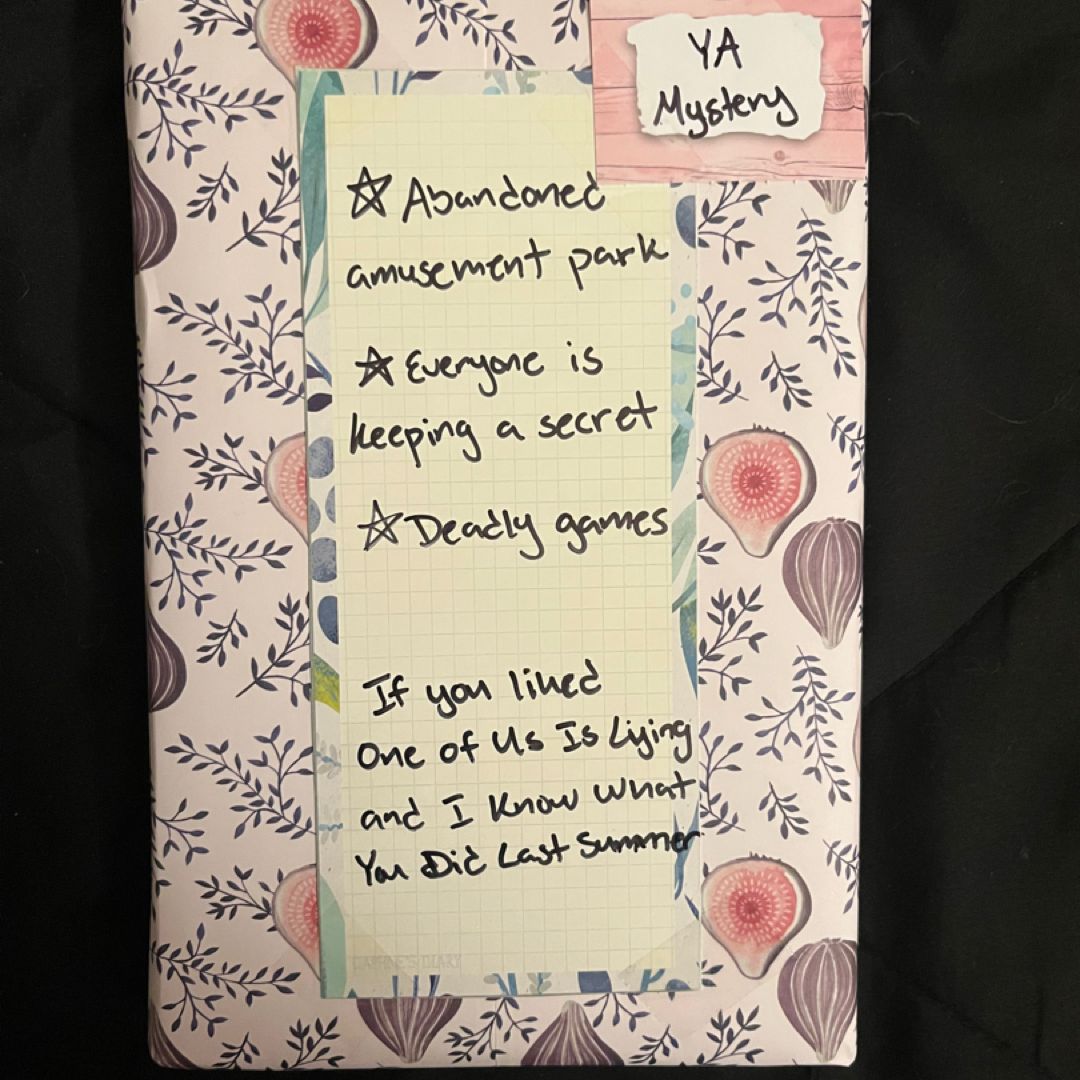 YA
Mystery
☆ Abandoned
amusement park
☆ Everyone is
keeping a secret
☆ Deadly games
If you liked
One of Us Is Lying
and I Know What
You Did Last Summer
DAPHNE'S DIARY